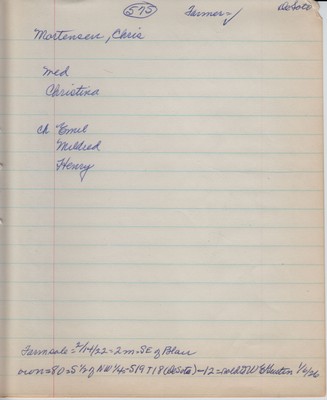 575 Farmer✓ DeSoto
Mortensen, Chris
med
Christina
ch Emil
Mildred
Henry
Farm sale = 2/14/22 = 2 m. SE of Blair
own = 80 = S½ of NW ¼ - S19 T18 (DeSoto) - 12 = sold to W 1/6/26